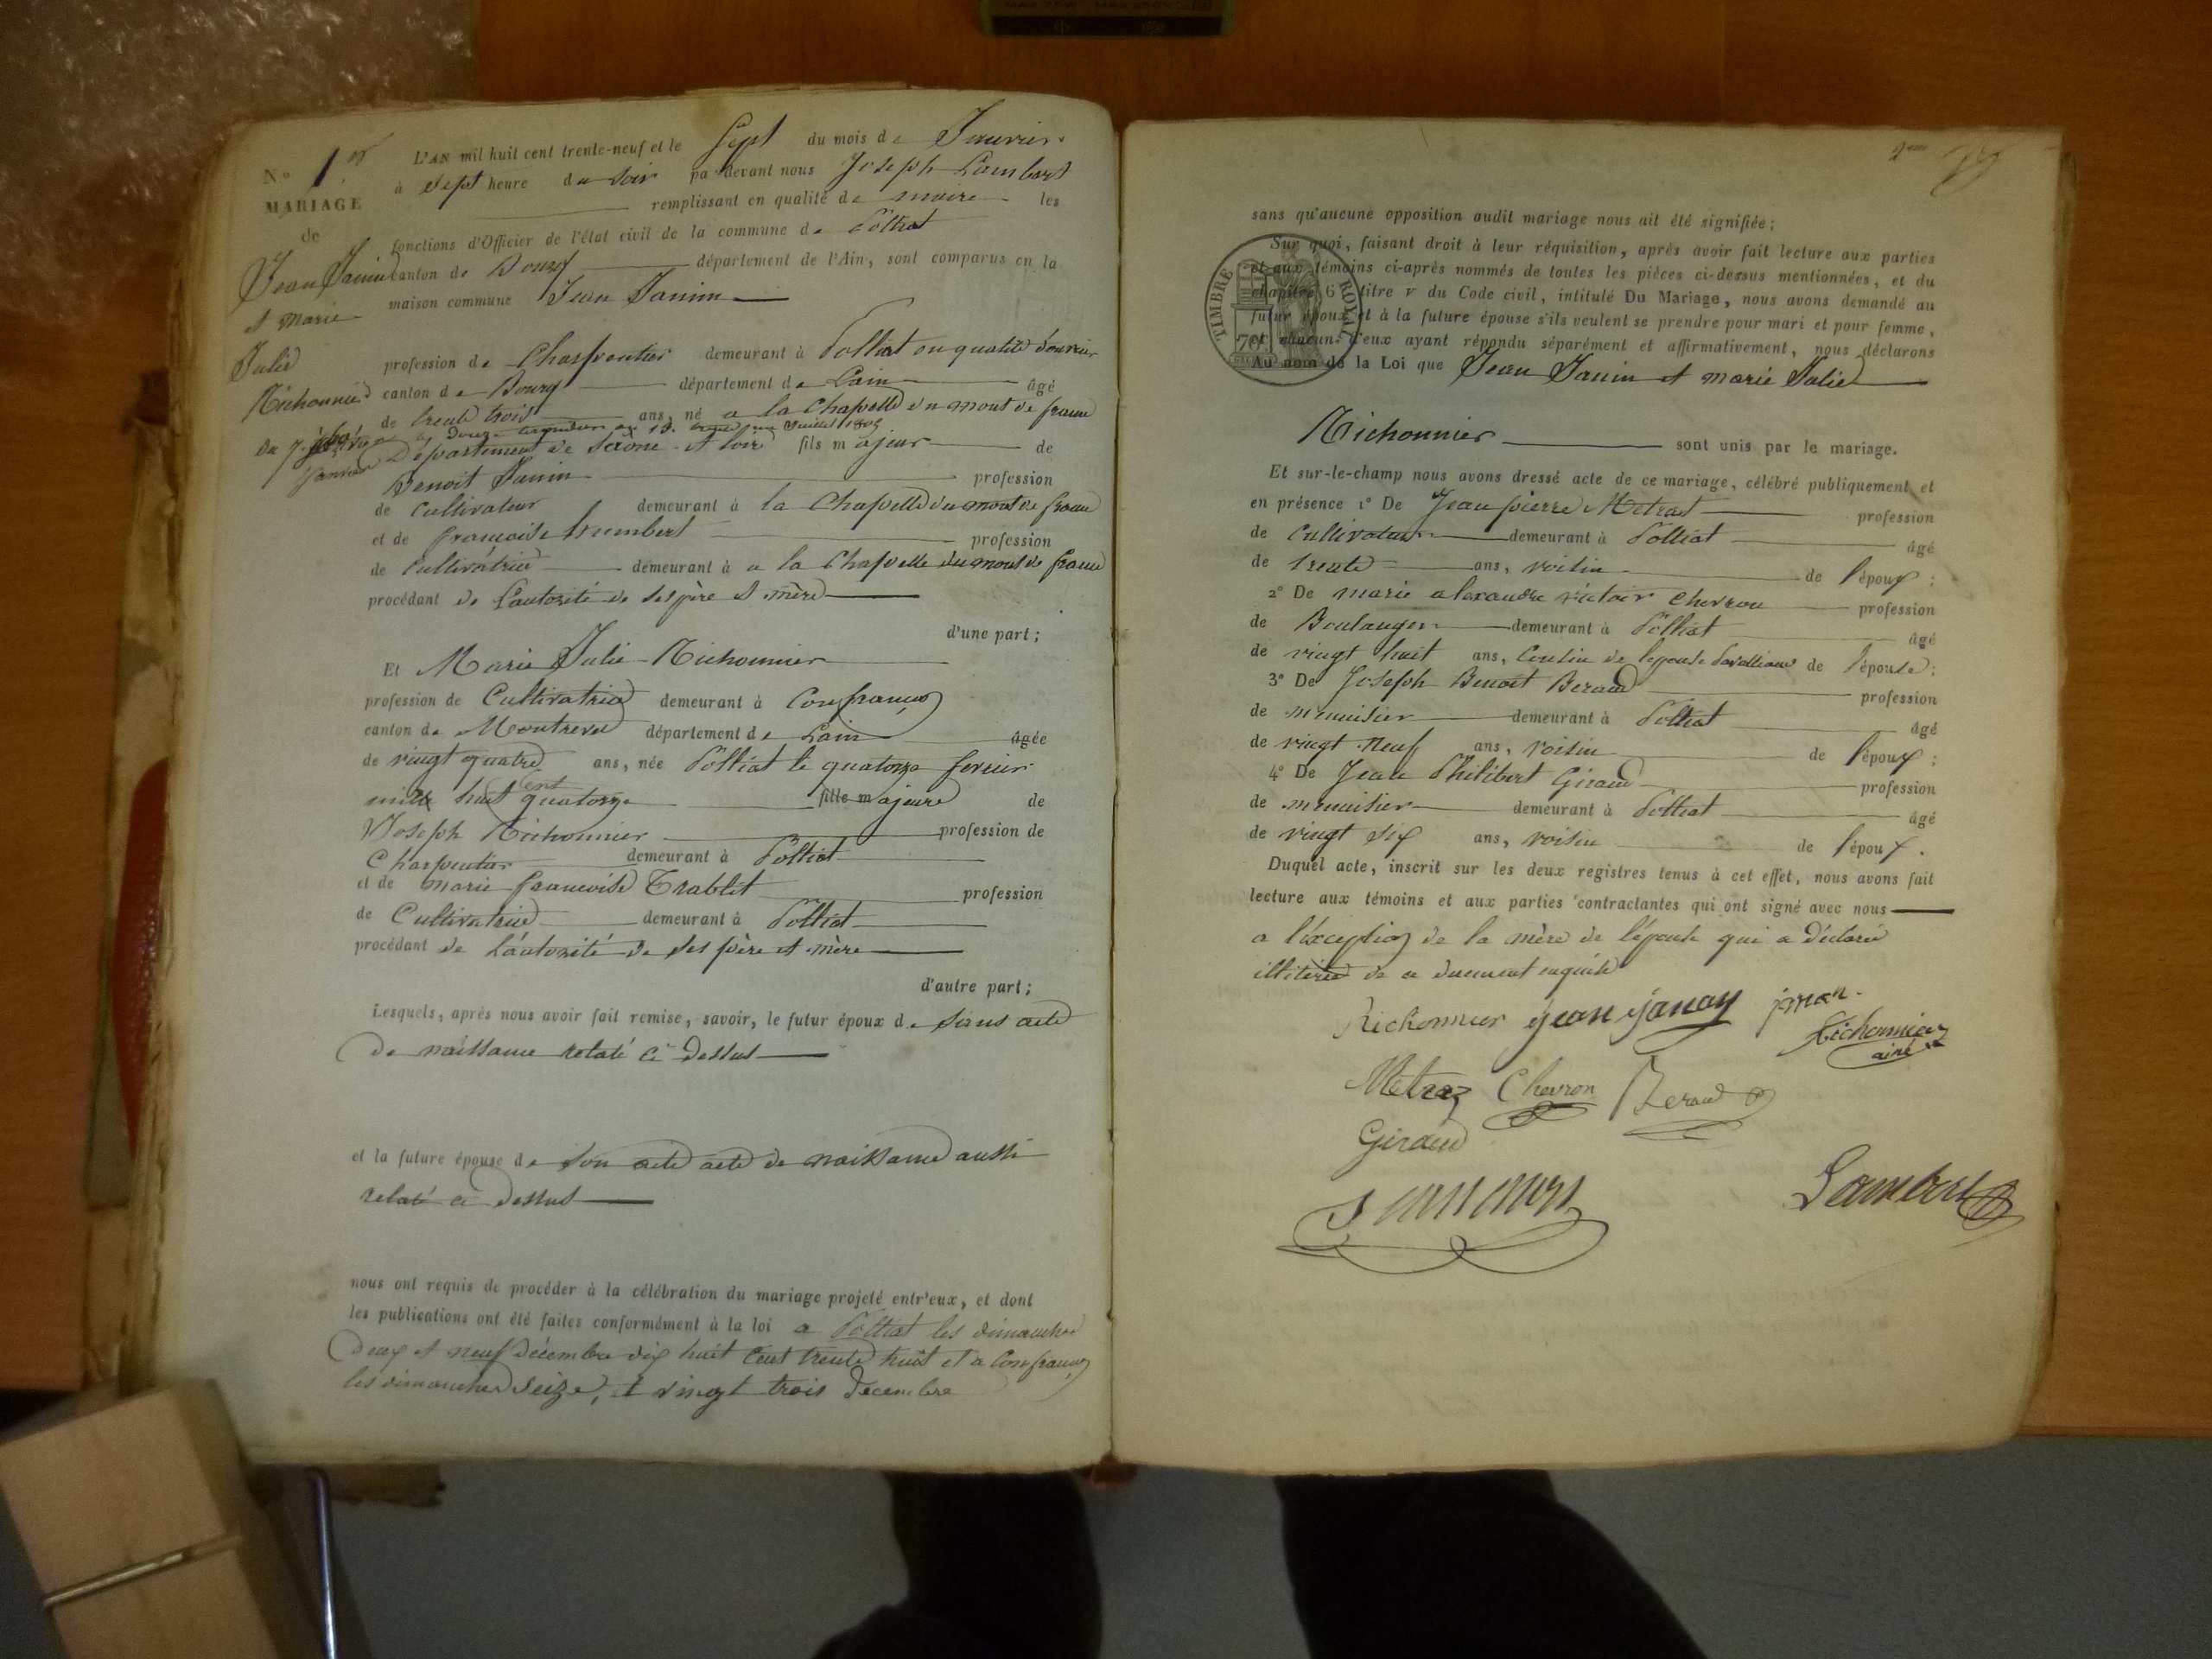 N° 1er
MARIAGE
de
Jean Janin
et Marie
Julie
Richonnier
du 7 janvier
L'AN mil huit cent trente-neuf et le Sept du mois de Janvier
à Sept heure du Soir par devant nous Joseph Lambert
remplissant en qualité de maire les
fonctions d'Officier de l'état civil de la commune de Polliat
canton de Bourg département de l'Ain, sont comparus en la
maison commune Jean Janin
profession de Charpentier demeurant à Polliat en qualité d'ouvrier
canton de Bourg département de Lain âgé
de trente trois ans, né a la Chapelle du mont de france
Département de Saône et Loire fils majeur de
Benoit Janin profession
de Cultivateur demeurant à la Chapelle du mont de france
et de françoise humbert profession
de Cultivatrice demeurant à a la Chapelle du mont de france
procédant de Lautorité de ses père et mère
d'une part;
Et Marie Julie Richonnier
profession de Cultivatrice demeurant à Confrançon
canton de Montrevel département de Lain âgée
de vingt quatre ans, née Polliat le quatorze fevrier
mille huit cent quatorze fille majeure de
Joseph Richonnier profession de
Charpentier demeurant à Polliat
et de marie françoise Trablit profession
de Cultivatrice demeurant à Polliat
procédant de Láutorité de ses père et mère
d'autre part;
Lesquels, après nous avoir fait remise, savoir, le futur époux de sons acte
de naissance relaté ci dessus
et la future épouse de son acte acte de naissance aussi
relaté ci dessus
nous ont requis de procéder à la célébration du mariage projeté entr'eux, et dont
les publications ont été faites conformément à la loi a Polliat les dimanches
deux et neuf décembre dix huit Cent trente huit et a Confrançon
les dimanches Seize, et vingt trois Decembre
2eme
sans qu'aucune opposition audit mariage nous ait été signifiée;
TIMBRE ROYAL
70
Sur quoi, faisant droit à leur réquisition, après avoir fait lecture aux parties
et aux témoins ci-après nommés de toutes les pièces ci-dessus mentionnées, et du
chapitre 6 titre v du Code civil, intitulé Du Mariage, nous avons demandé au
futur époux et à la future épouse s'ils veulent se prendre pour mari et pour femme,
et chacun d'eux ayant répondu séparément et affirmativement, nous déclarons
Au nom de la Loi que Jean Janin et marie Julie
Richonnier sont unis par le mariage.
Et sur-le-champ nous avons dressé acte de ce mariage, célébré publiquement et
en présence 1° De Jean pierre Metrat profession
de Cultivateur demeurant à Polliat âgé
de trente ans, voisin de l'époux;
2° De marie alexandre victoir Chevron profession
de Boulanger demeurant à Polliat âgé
de vingt huit ans, Cousin de lepouse de l'épouse;
3° De Joseph Benoit Beraud profession
de menuisier demeurant à Polliat âgé
de vingt neuf ans, voisin de l'époux;
4° De Jean Philibert Giraud profession
de menuisier demeurant à Polliat âgé
de vingt six ans, voisin de l'époux.
Duquel acte, inscrit sur les deux registres tenus à cet effet, nous avons fait
lecture aux témoins et aux parties contractantes qui ont signé avec nous
a l'exception de la mère de l'épouse qui a déclaré
illiterée de ce duement enquise
Richonnier jean janay janan
Richonnier
ainé
Metraz Chevron Beraud
Giraud
Lambert